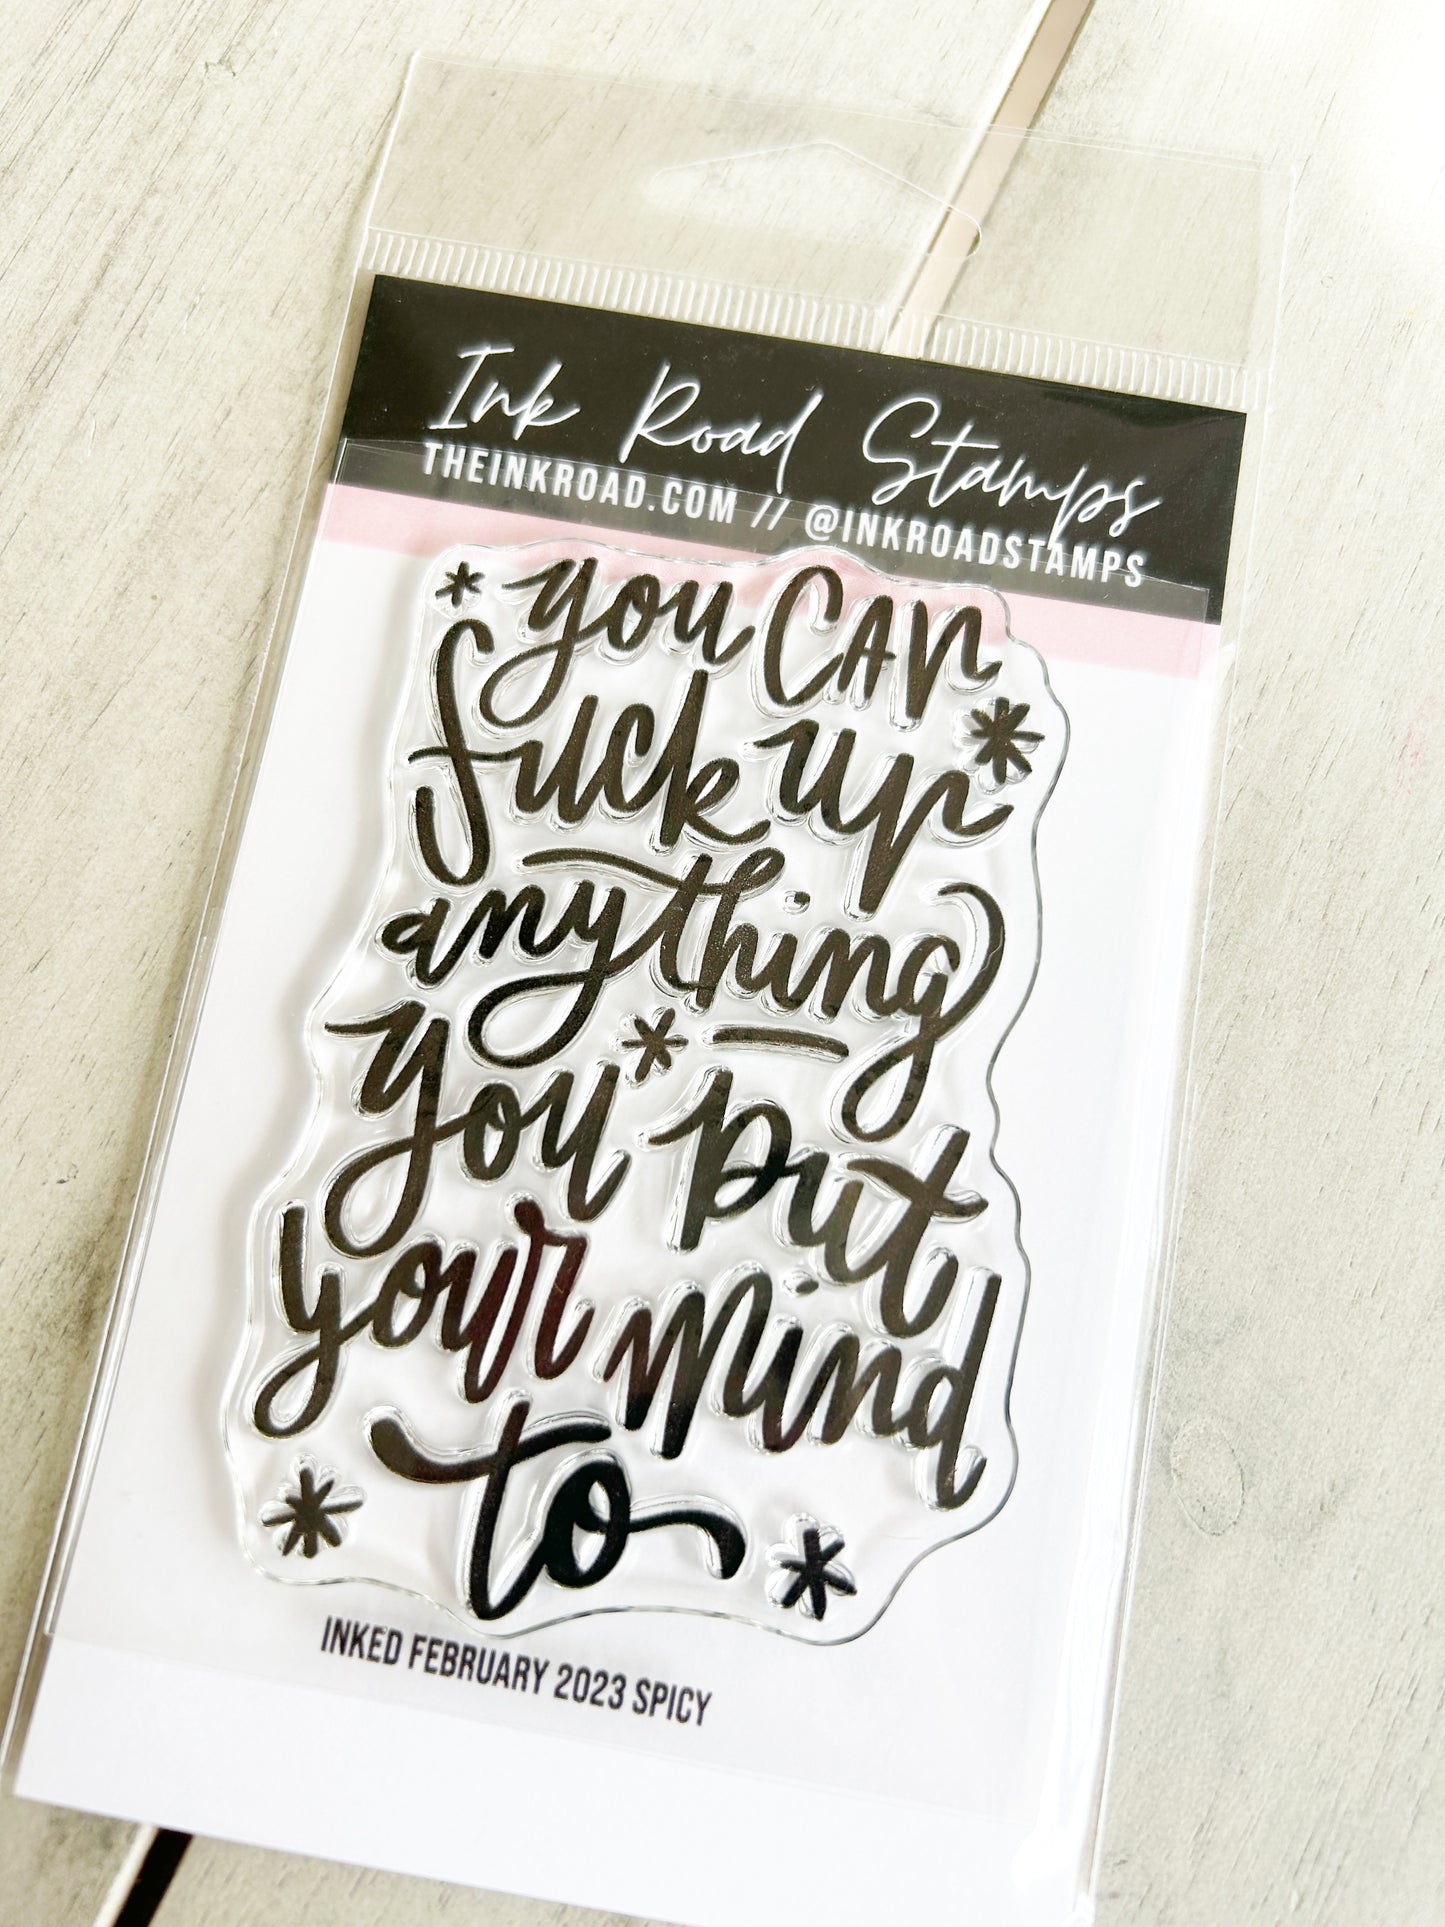 Ink Road Stamps
THEINKROAD.COM // @INKROADSTAMPS
you CAN
fuck up
anything
you put
your mind
to
INKED FEBRUARY 2023 SPICY